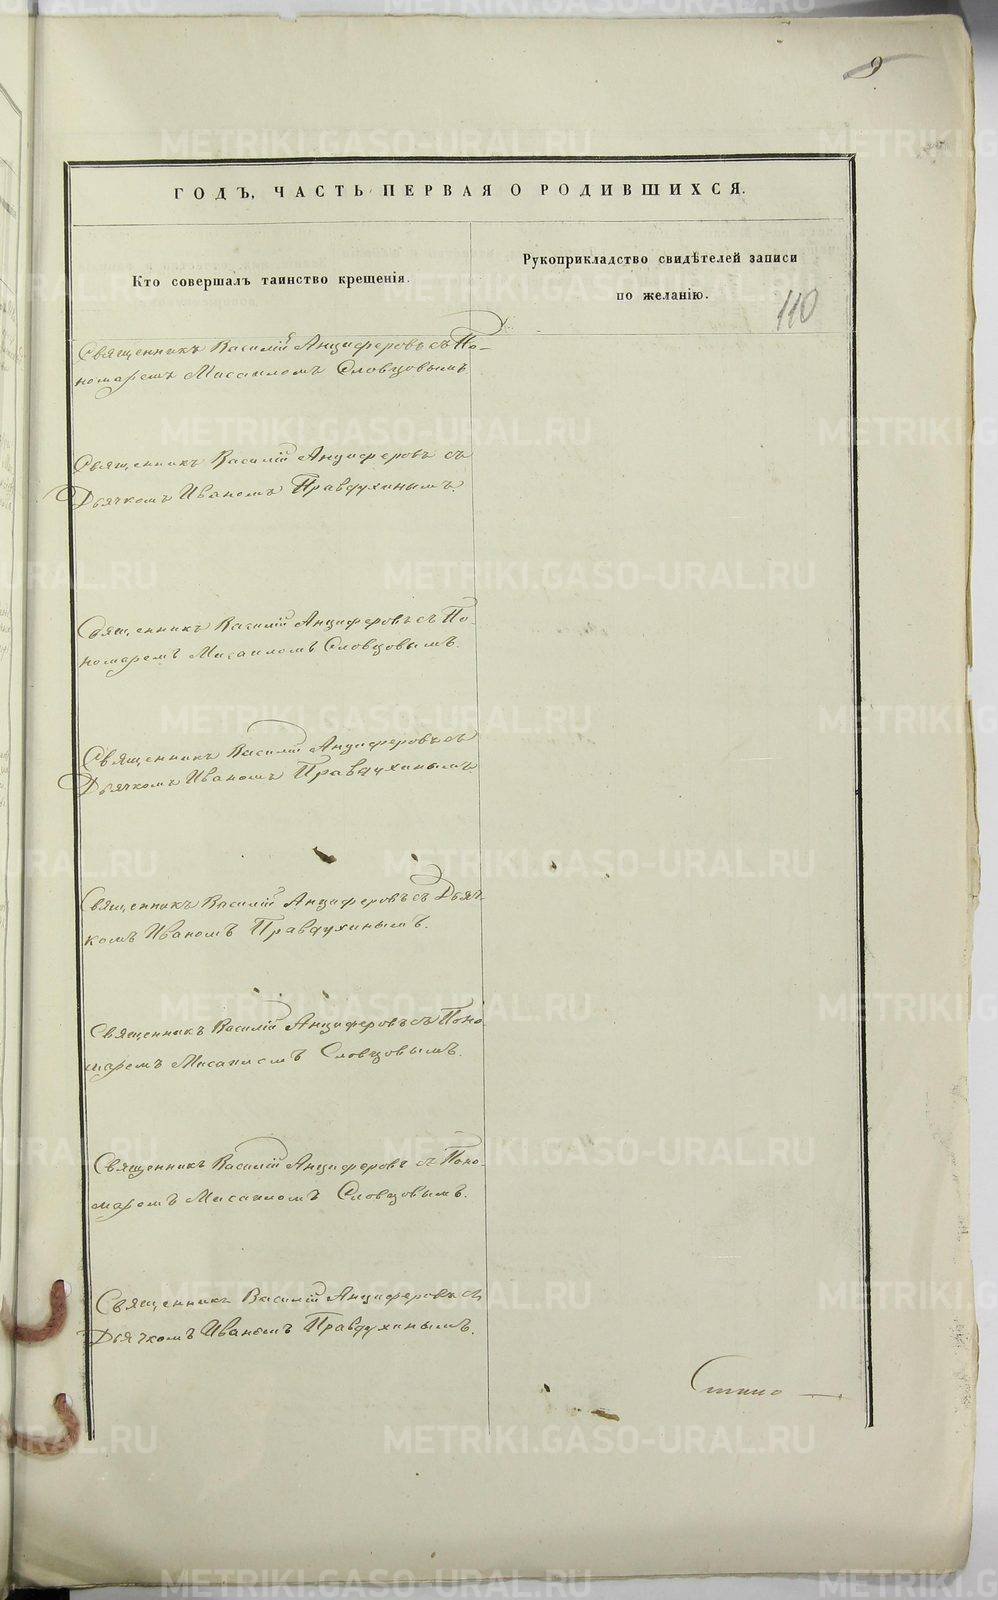 9
ГОДЪ, ЧАСТЬ ПЕРВАЯ О РОДИВШИХСЯ.
Кто совершалъ таинство крещенія.
Рукоприкладство свидѣтелей записи
по желанію.
110
Священникъ Василій Анциферовъ съ По-
номаремъ Мисаиломъ Словцовымъ
Священникъ Василій Анциферовъ съ
Дьячкомъ Иваномъ Правдухинымъ.
Священникъ Василій Анциферовъ съ По-
номаремъ Мисаиломъ Словцовымъ.
Священникъ Василій Анциферовъ съ
Дьячкомъ Иваномъ Правдухинымъ.
Священникъ Василій Анциферовъ съ Дьяч-
комъ Иваномъ Правдухинымъ.
Священникъ Василій Анциферовъ съ Поно-
маремъ Мисаиломъ Словцовымъ.
Священникъ Василій Анциферовъ съ Поно-
маремъ Мисаиломъ Словцовымъ.
Священникъ Василій Анциферовъ съ
Дьячкомъ Иваномъ Правдухинымъ.
METRIKI.GASO-URAL.RU